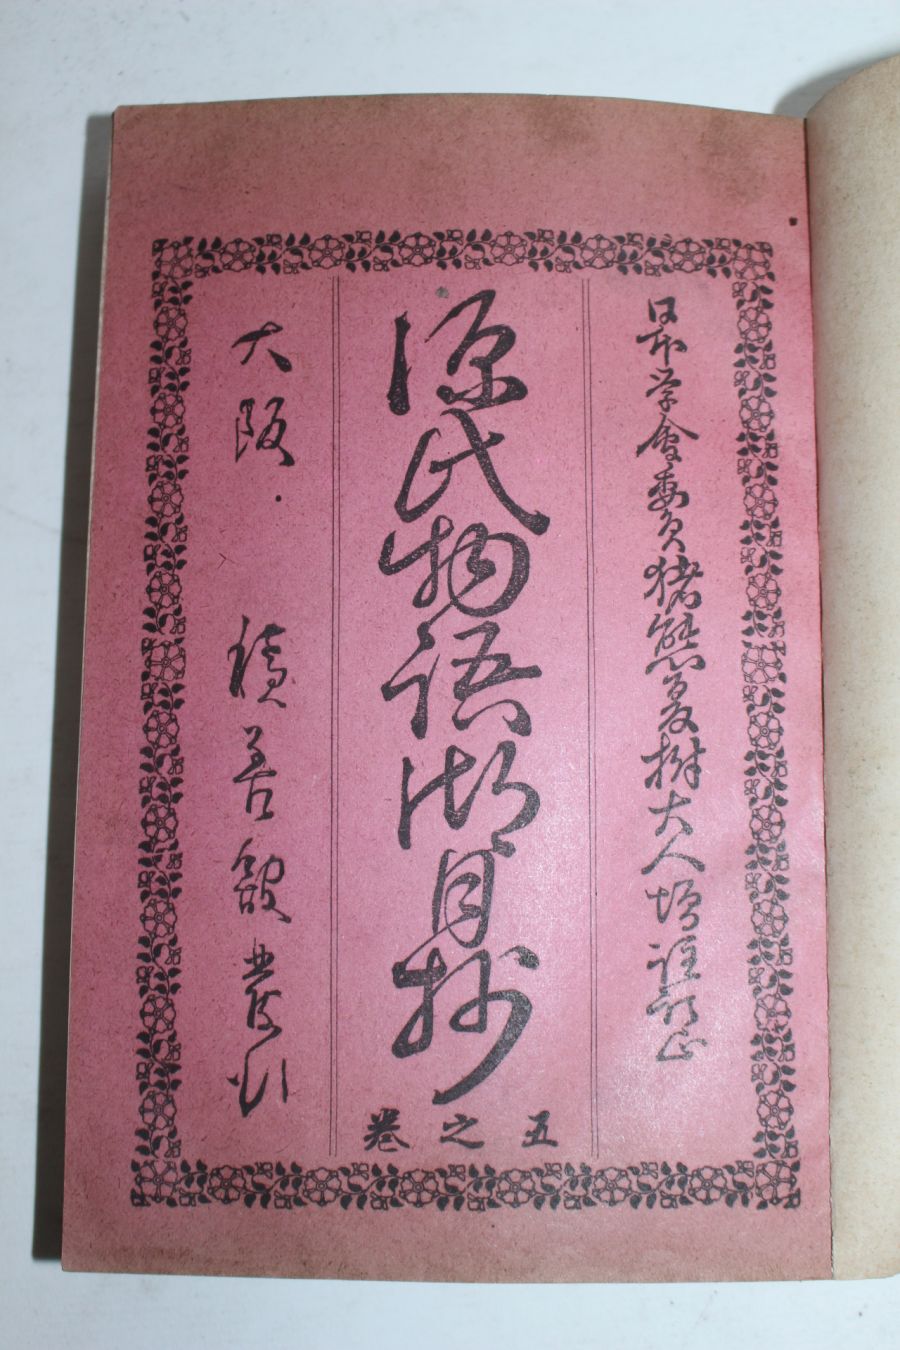 日本学會委員猪熊夏樹大人増註訂正
源氏物語湖月抄
卷之五
大阪．積善館發行